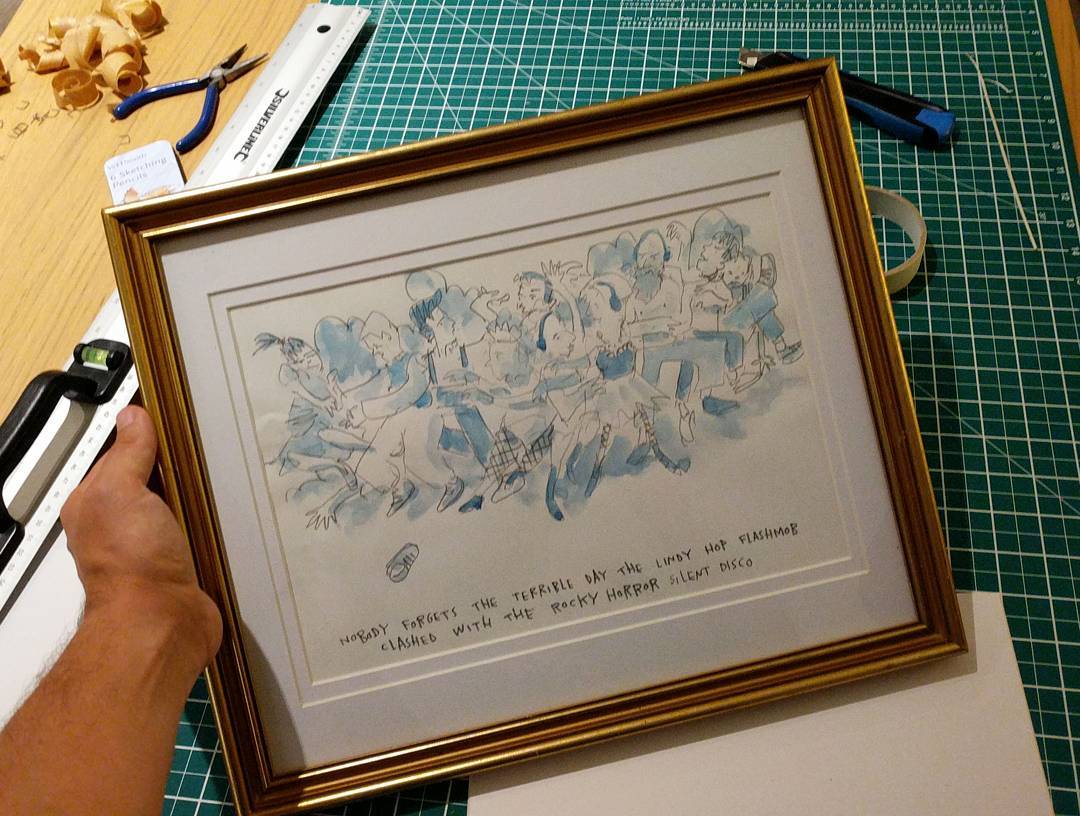 SILVERLINE
6 Sketching
Pencils
NOBODY FORGETS THE TERRIBLE DAY THE LINDY HOP FLASHMOB
CLASHED WITH THE ROCKY HORROR SILENT DISCO